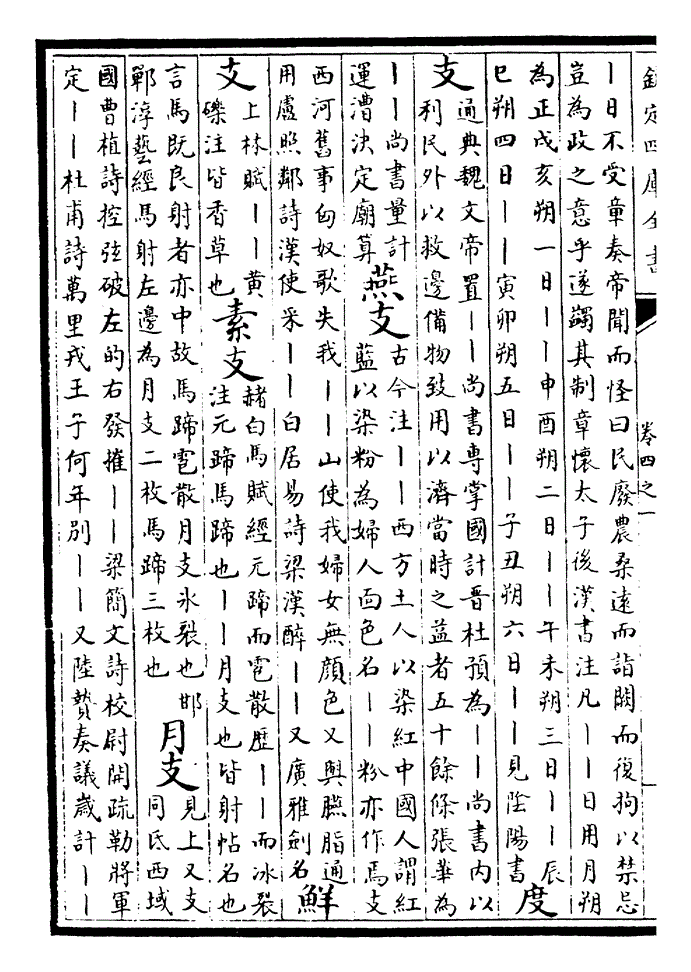 欽定四庫全書 卷四之一
丨日不受章奏帝聞而怪曰民廢農桑遠而詣闕而復狗以禁忌
豈為政之意乎遂蠲其制章懷太子後漢書注凡丨丨日用月朔
為正戌亥朔一日丨丨申酉朔二日丨丨午未朔三日丨丨辰
巳朔四日丨丨寅卯朔五日丨丨子丑朔六日丨丨見陰陽書
度
支
通典魏文帝置丨丨尚書專掌國計晉杜預為丨丨尚書内以
利民外以救邊備物致用以濟當時之益者五十餘條張華為
丨丨尚書量計
運漕決定廟算
燕支
古今注丨丨西方土人以染紅中國人謂紅
藍以染粉為婦人面色名丨丨粉亦作馬支
西河舊事匈奴歌失我丨丨山使我婦女無顔色又與臙脂通
用盧照鄰詩漢使采丨丨白居易詩梁漢醉丨丨又廣雅劍名
鮮
支
上林賦丨丨黄
礫注皆香草也
素支
赭白馬賦經元蹄而雹散歴丨丨而冰裂
注元蹄馬蹄也丨丨月支也皆射帖名也
言馬既良射者亦中故馬蹄雹散月支氷裂也邯
鄲淳藝經馬射左邊為月支二枚馬蹄三枚也
月支
見上又支
同氐西域
國曹植詩控弦破左的右發摧丨丨梁簡文詩校尉開疏勒將軍
定丨丨杜甫詩萬里戎王子何年别丨丨又陸贄奏議歲計丨丨